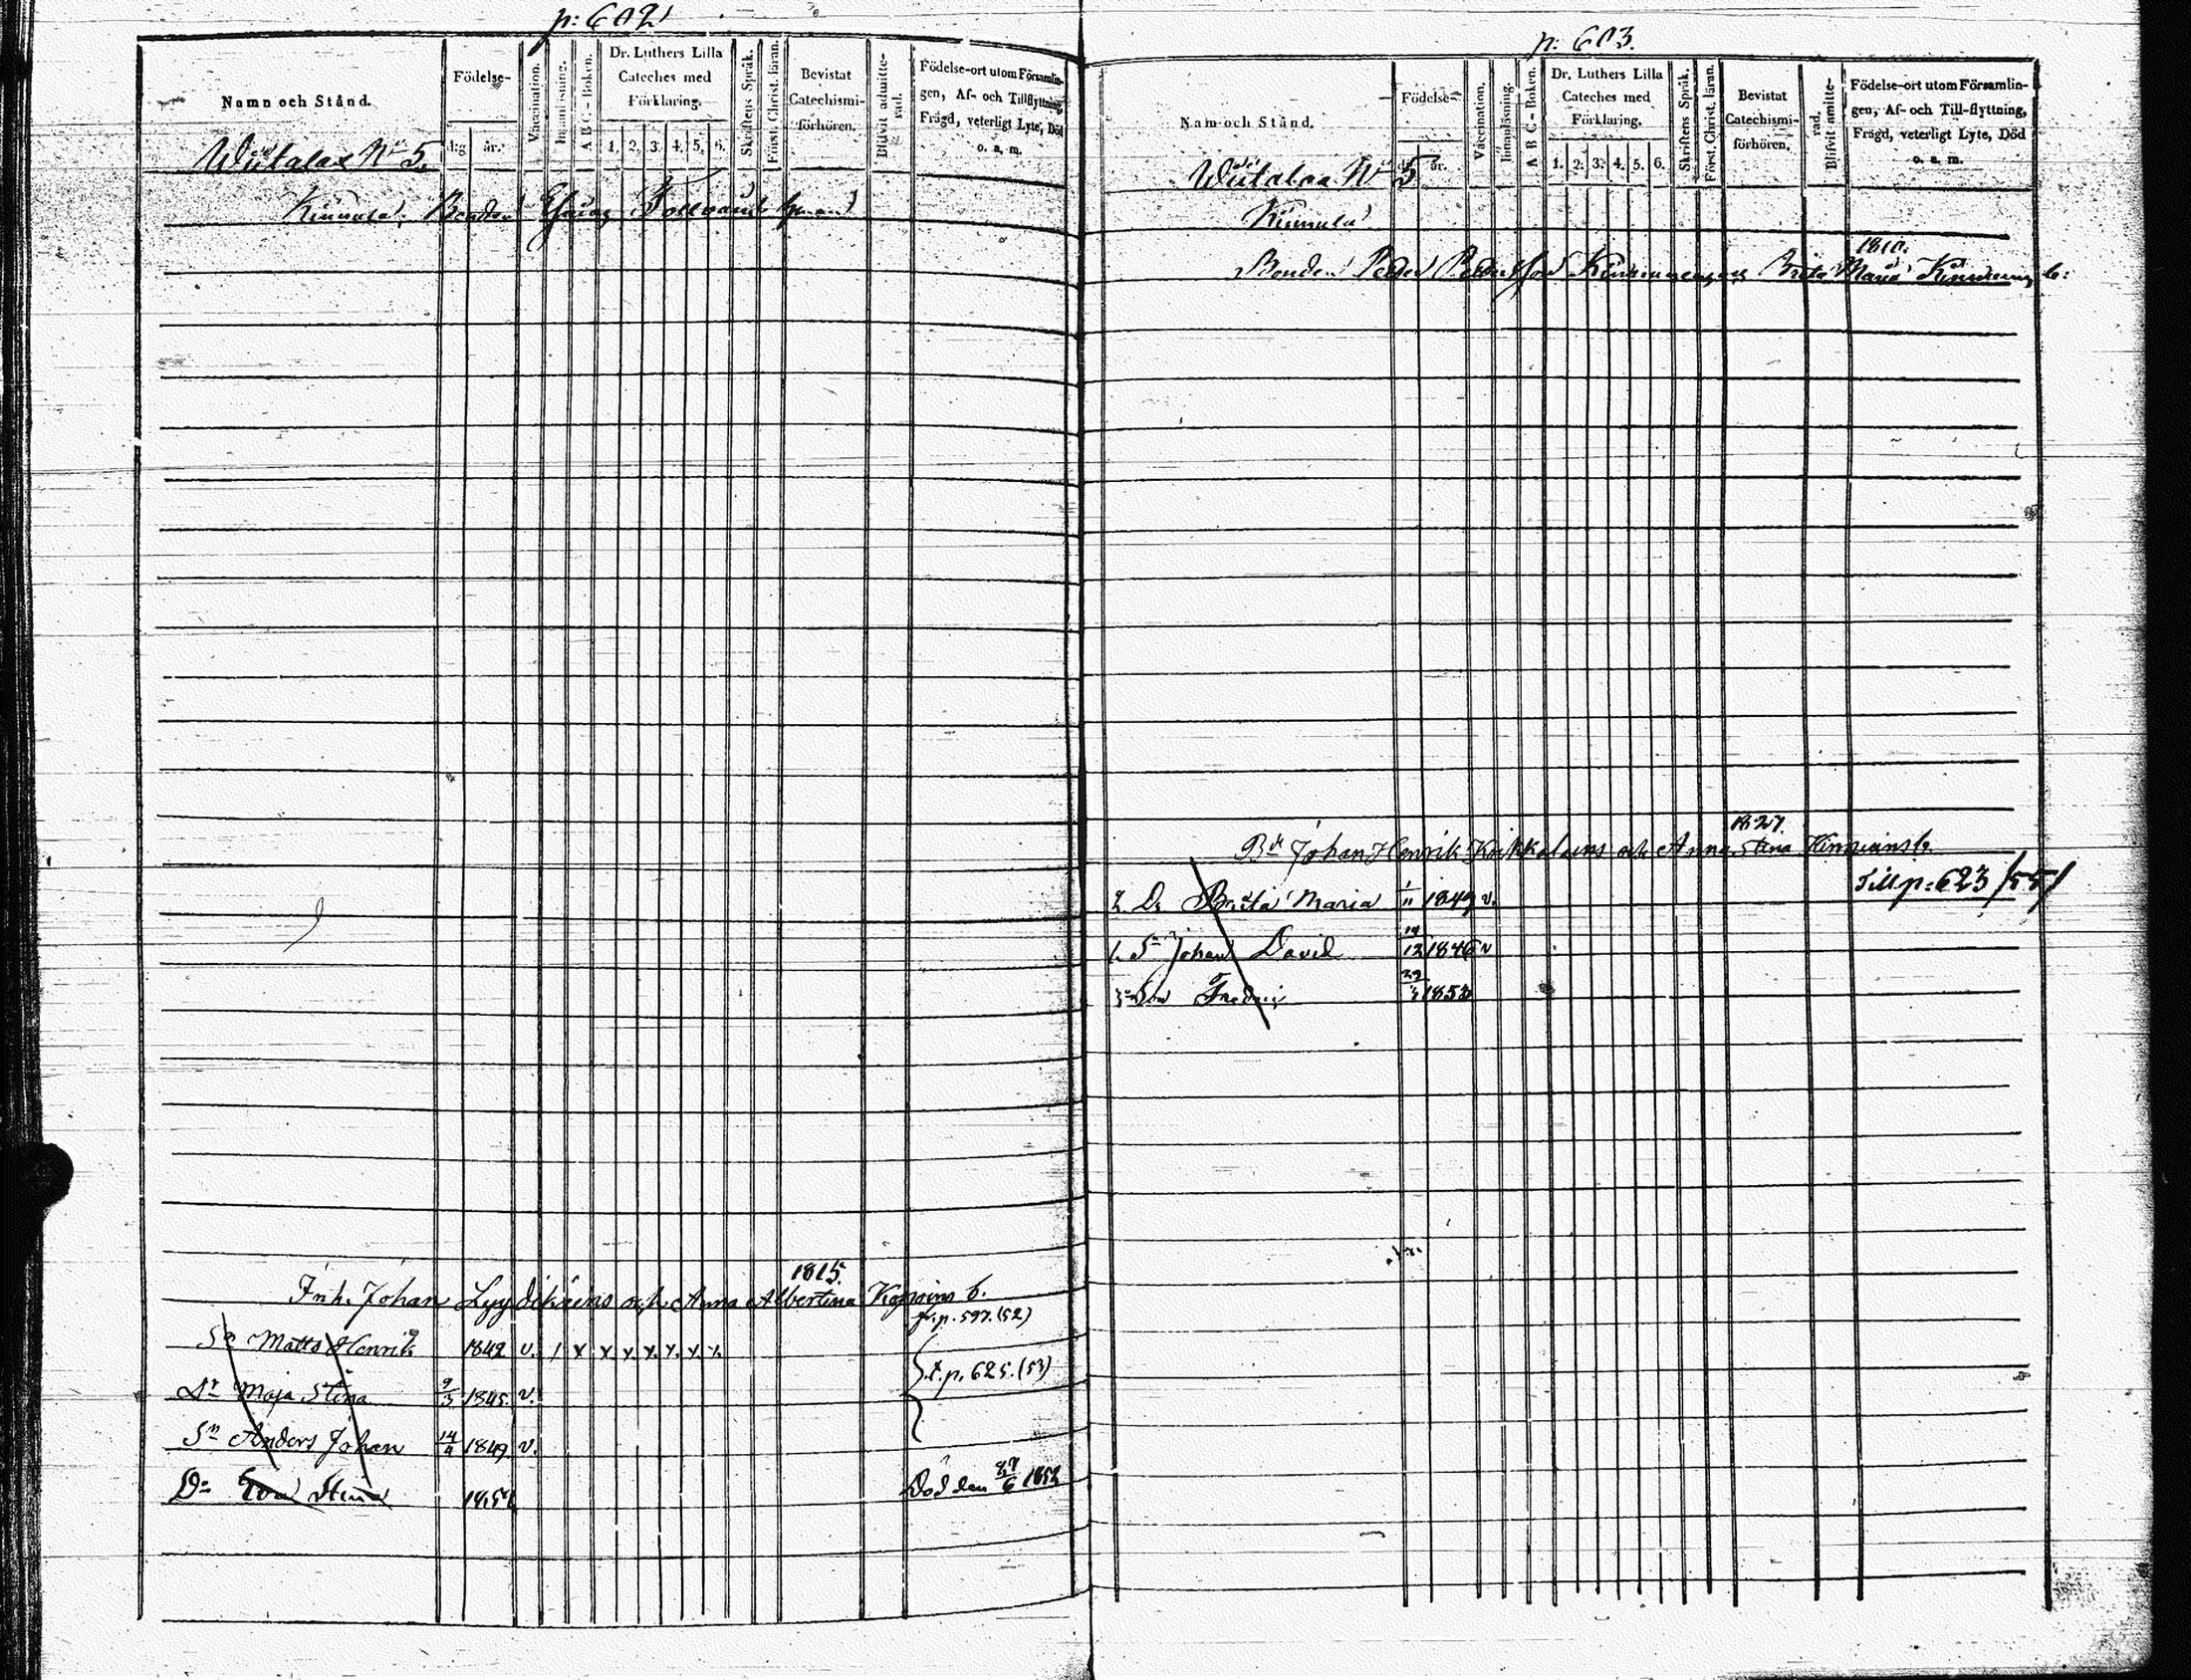 p: 602
Namn och Stånd.
Födelse-
dg
år.
Vaccination.
Innanläsning.
A B C - Boken.
Dr. Luthers Lilla
Cateches med
Förklaring.
1. 2. 3. 4. 5. 6.
Skriftens Språk.
Först. Christ. läran.
Bevistat
Catechismi-
förhören.
Blifvit admitte-
rad.
Födelse-ort utom Församlin-
gen, Af- och Tillflyttning,
Frägd, veterligt Lyte, Död
o. a. m.
Wiitalax No 5.
Kinnula, Bonden
1815.
Inh. Johan Lyydikäins och Anna Albertina Kopoins b.
fr. p. 597. (52)
Sn Matts Henrik 1842 v. / x x x. x. x. x. x.
t. p. 625. (53)
Dr Maja Stina 9/3 1845. v.
Sn Anders Johan 14/4 1849 v.
Dr Eva Stina 1851
Död den 27/6 1852
p. 603.
Namn och Stånd.
Födelse-
år.
Vaccination.
Innanläsning.
A B C - Boken.
Dr. Luthers Lilla
Cateches med
Förklaring.
1. 2. 3. 4. 5. 6.
Skriftens Språk.
Först. Christ. läran.
Bevistat
Catechismi-
förhören.
rad.
Blifvit admitte-
Födelse-ort utom Församlin-
gen, Af- och Till-flyttning,
Frägd, veterligt Lyte, Död
o. a. m.
Wiitalax No 5
Kinnula
1810.
Bonden Peder Pedersson Kinnunen och Brita Maria
1827.
Bd Johan Henrik Krikkalains och Anna Stina Kinnuinsb.
Till p: 623/55/
2. Dr Brita Maria 1/11 1849 v.
1. Sn Johan David 14/12 1846 v
3 Son Fredric 29/3 1853